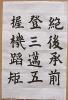 絶後承前
登三邁五
握機蹈矩